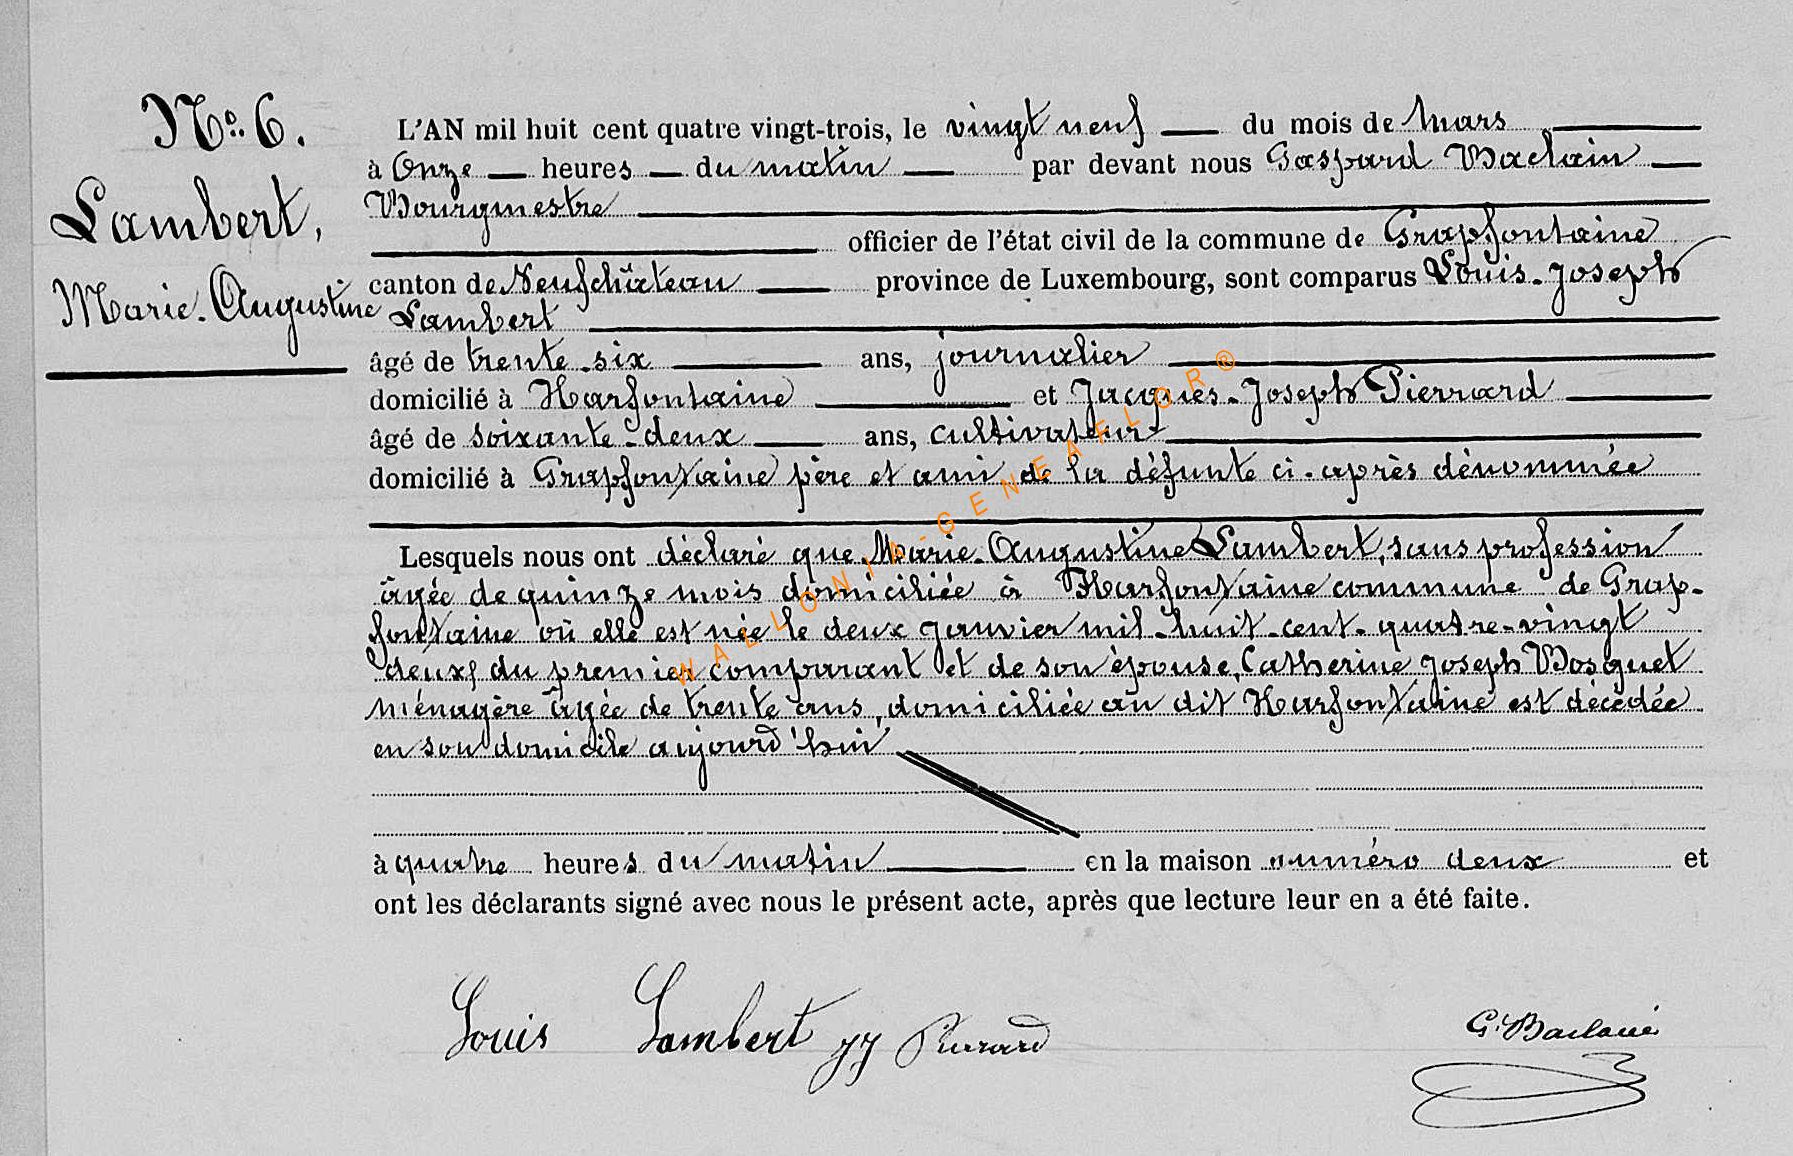 No. 6.
Lambert,
Marie-Augustine
L'AN mil huit cent quatre vingt-trois, le vingt neuf du mois de Mars
à Onze heures du matin par devant nous Gaspard Baclain
Bourgmestre
officier de l'état civil de la commune de Grapfontaine
canton de Neufchâteau province de Luxembourg, sont comparus Louis-Joseph
Lambert
âgé de trente-six ans, journalier
domicilié à Harfontaine et Jacques-Joseph Pierrard
âgé de soixante-deux ans, cultivateur
domicilié à Grapfontaine père et ami de la défunte ci-après dénommée
Lesquels nous ont déclaré que Marie-Augustine Lambert, sans profession
âgée de quinze mois domiciliée à Harfontaine commune de Grap-
fontaine où elle est née le deux janvier mil-huit-cent-quatre-vingt
deux, du premier comparant et de son épouse, Catherine Joseph Bosquet
ménagère âgée de trente ans, domiciliée au dit Harfontaine est décédée
en son domicile aujourd'hui
à quatre heures du matin en la maison numéro deux et
ont les déclarants signé avec nous le présent acte, après que lecture leur en a été faite.
Louis Lambert JJ Pierard G. Baclain
WALLONIA-GENEAFLOR®